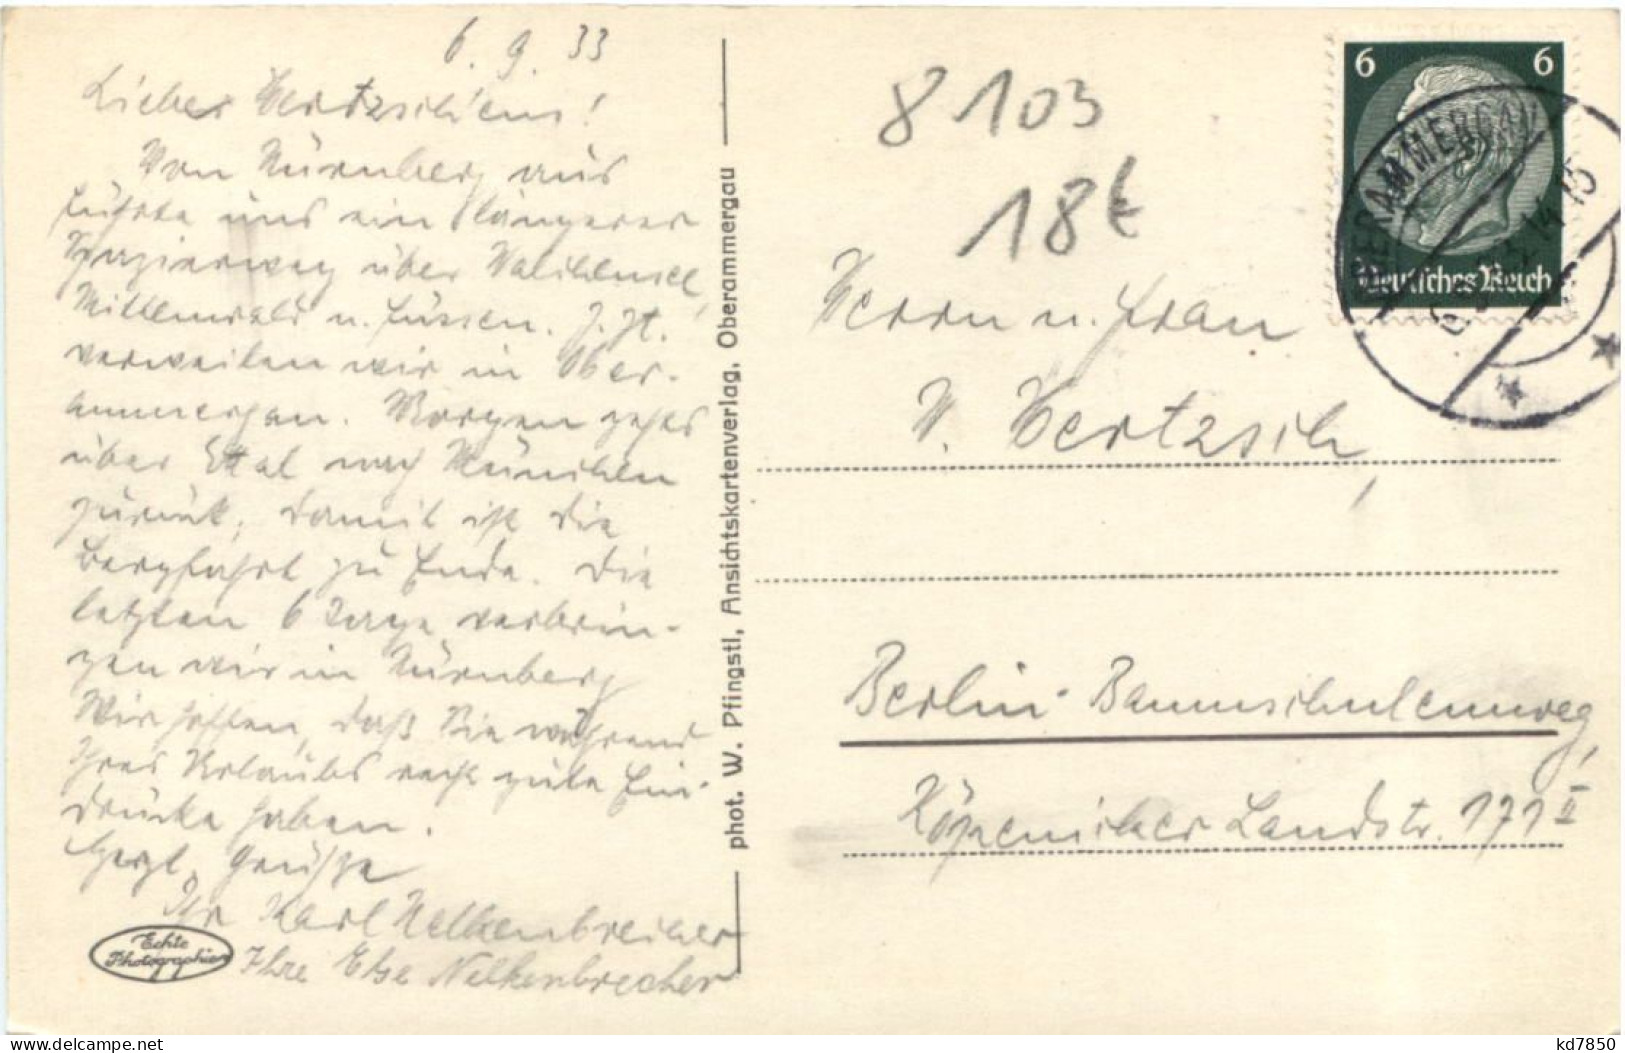 6. 9. 33
Liebes Hertzschens!
Von Nürnberg aus
führte uns ein längerer
Spazierweg über Walchensee,
Mittenwald u. Füssen. Z. Zt.
verweilen wir in Ober-
ammergau. Morgen gehts
über Ettal nach München
zurück, damit ist die
Bergfahrt zu Ende. Die
letzten 6 Tage verbrin-
gen wir in Nürnberg
Wir hoffen, daß Sie während
Ihres Urlaubs recht gute Ein-
drücke haben.
Herzl. Grüße
Ihr Karl Nelkenbrecher
Ihre Else Nelkenbrecher
Echte
Photographie
phot. W. Pfingstl, Ansichtskartenverlag, Oberammergau
8103
18€
6 6
Deutsches Reich
OBERAMMERGAU
Herrn u. Frau
W. Hertzsch,
Berlin-Baumschulenweg,
Köpenicker Landstr. 171 II
kd7850